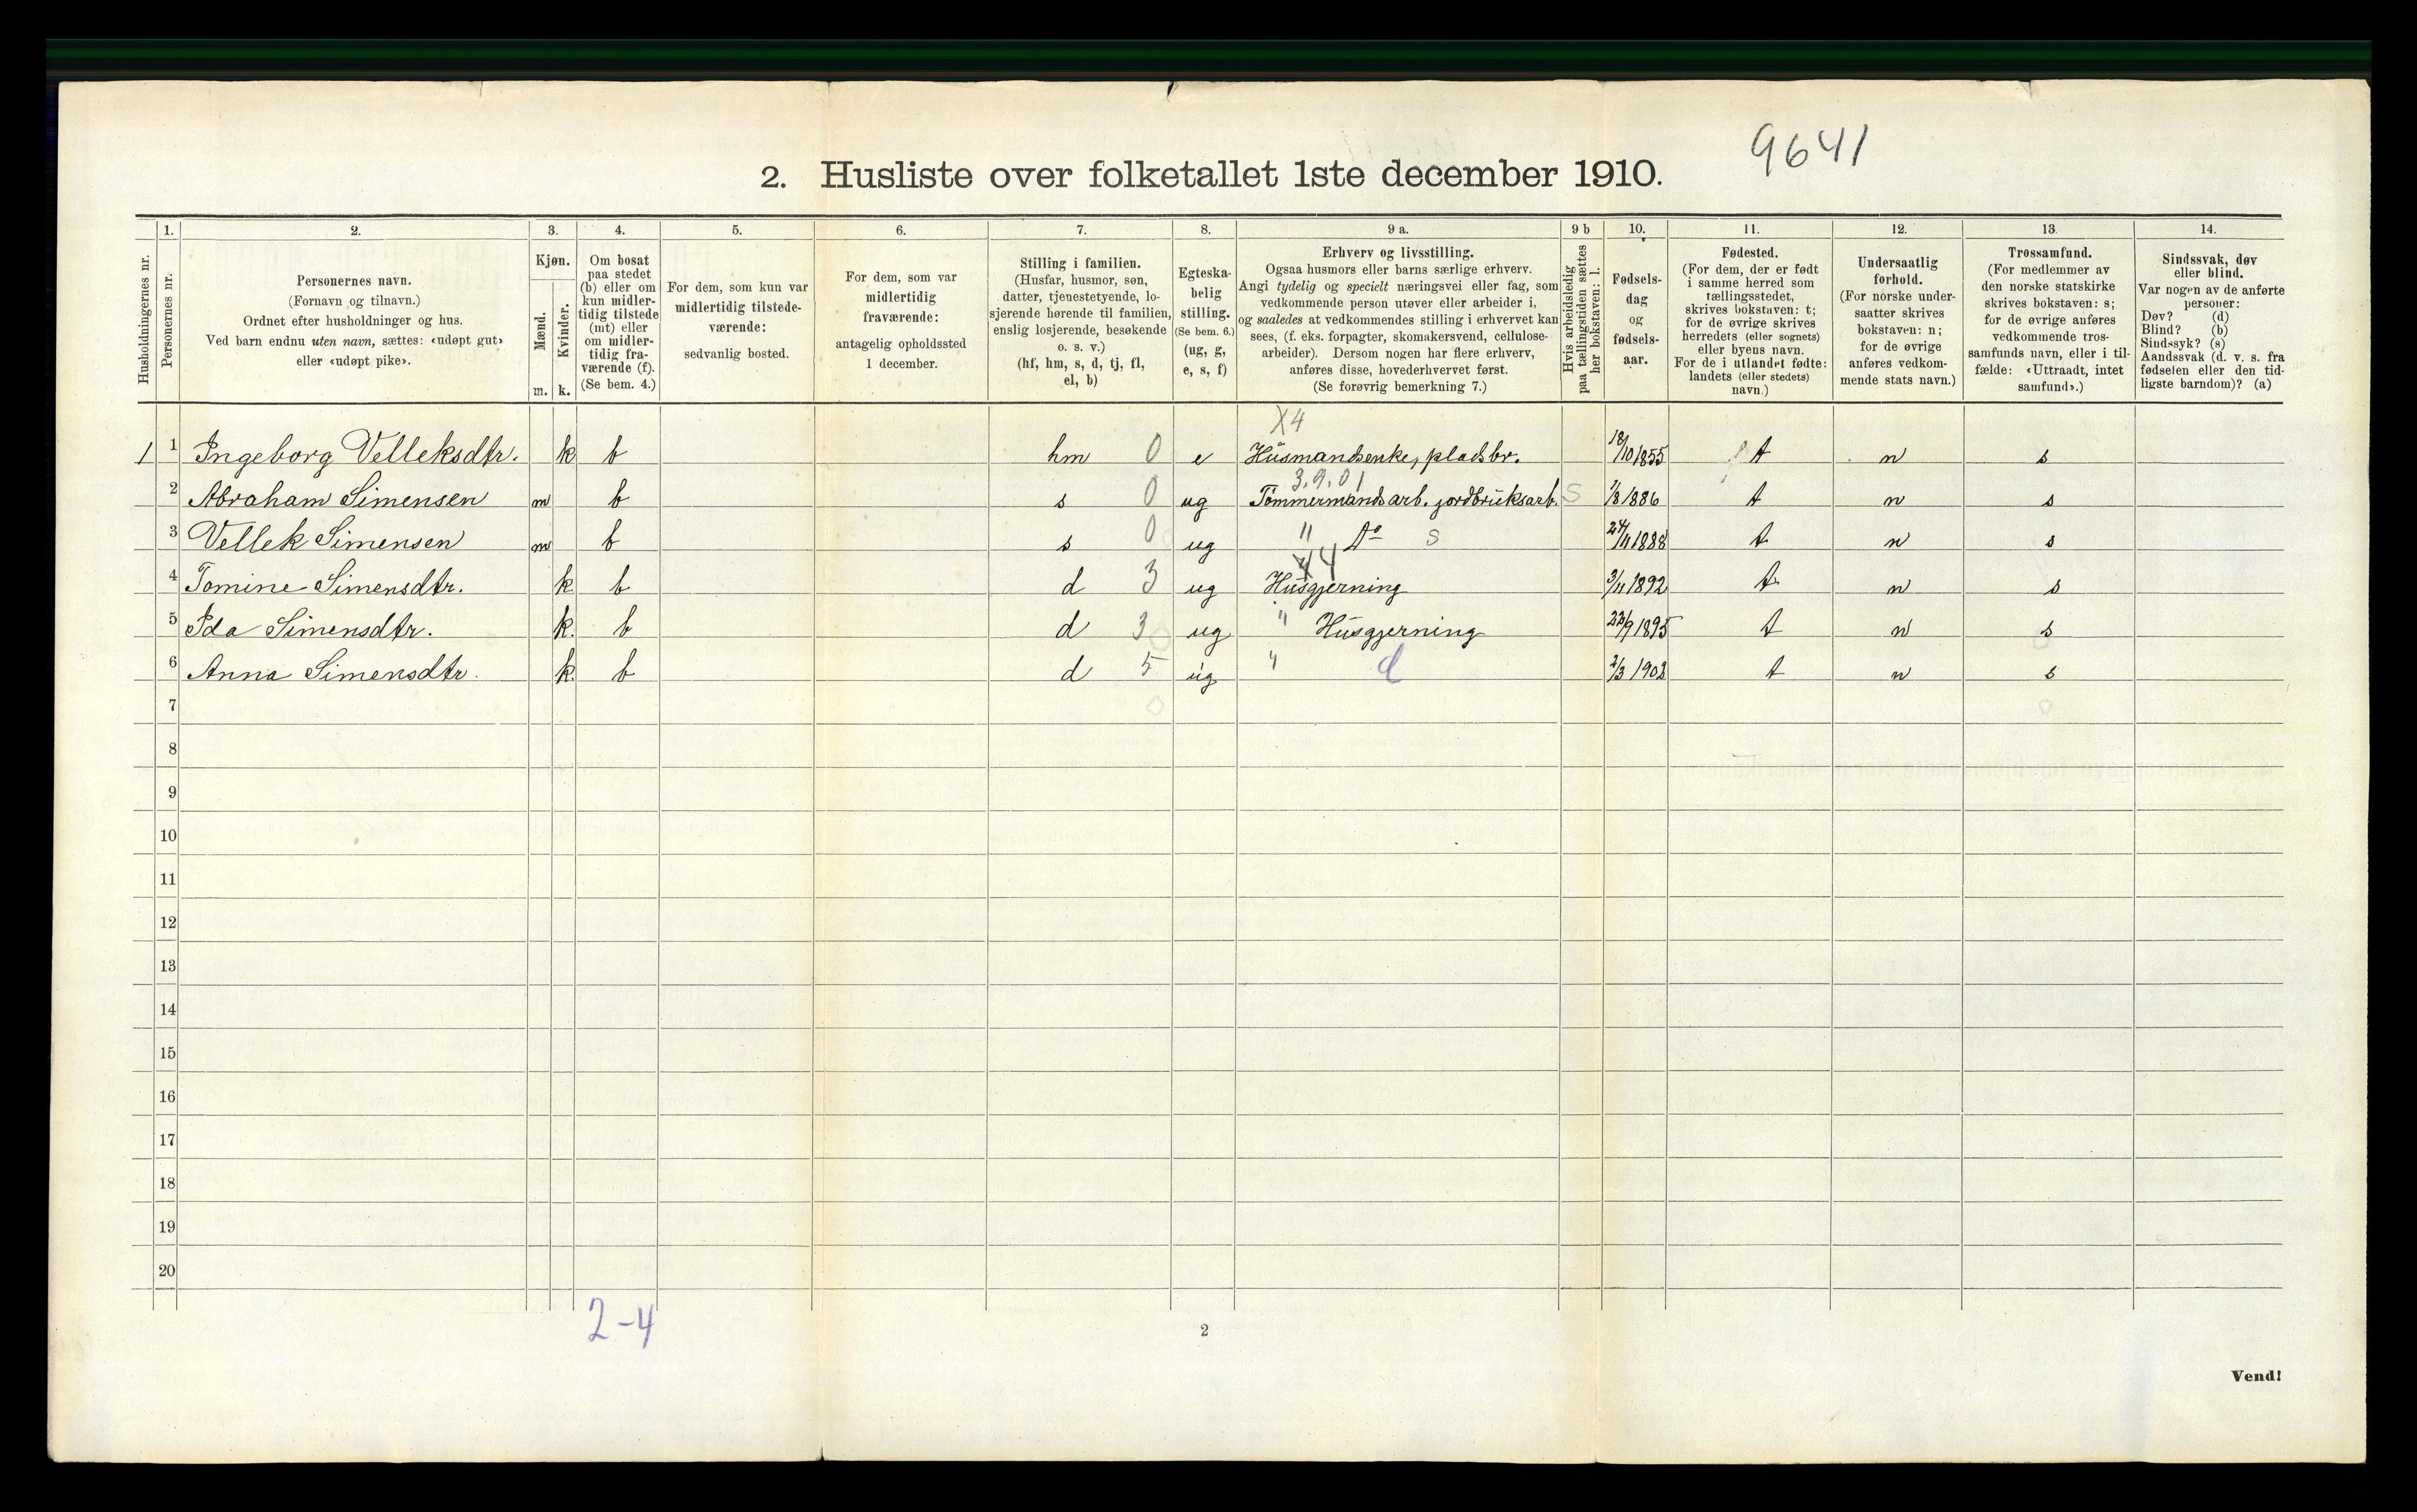 9641
2. Husliste over folketallet 1ste december 1910.
Husholdningernes nr.
1.
Personernes nr.
2.
Personernes navn.
(Fornavn og tilnavn.)
Ordnet efter husholdninger og hus.
Ved barn endnu uten navn, sættes: «udøpt gut»
eller «udøpt pike».
3.
Kjøn.
Mænd.
m.
Kvinder.
k.
4.
Om bosat
paa stedet
(b) eller om
kun midler-
tidig tilstede
(mt) eller
om midler-
tidig fra-
værende (f).
(Se bem. 4.)
5.
For dem, som kun var
midlertidig tilstede-
værende:
sedvanlig bosted.
6.
For dem, som var
midlertidig
fraværende:
antagelig opholdssted
1 december.
7.
Stilling i familien.
(Husfar, husmor, søn,
datter, tjenestetyende, lo-
sjerende hørende til familien,
enslig losjerende, besøkende
o. s. v.)
(hf, hm, s, d, tj, fl,
el, b)
8.
Egteska-
belig
stilling.
(Se bem. 6.)
(ug, g,
e, s, f)
9 a.
Erhverv og livsstilling.
Ogsaa husmors eller barns særlige erhverv.
Angi tydelig og specielt næringsvei eller fag, som
vedkommende person utøver eller arbeider i,
og saaledes at vedkommendes stilling i erhvervet kan
sees, (f. eks. forpagter, skomakersvend, cellulose-
arbeider). Dersom nogen har flere erhverv,
anføres disse, hovederhvervet først.
(Se forøvrig bemerkning 7.)
9 b
Hvis arbeidsledig
paa tællingstiden sættes
her bokstaven: l.
10.
Fødsels-
dag
og
fødsels-
aar.
11.
Fødested.
(For dem, der er født
i samme herred som
tællingsstedet,
skrives bokstaven: t;
for de øvrige skrives
herredets (eller sognets)
eller byens navn.
For de i utlandet fødte:
landets (eller stedets)
navn.)
12.
Undersaatlig
forhold.
(For norske under-
saatter skrives
bokstaven: n;
for de øvrige
anføres vedkom-
mende stats navn.)
13.
Trossamfund.
(For medlemmer av
den norske statskirke
skrives bokstaven: s;
for de øvrige anføres
vedkommende tros-
samfunds navn, eller i til-
fælde: «Uttraadt, intet
samfund».)
14.
Sindssvak, døv
eller blind.
Var nogen av de anførte
personer:
Døv? (d)
Blind? (b)
Sindssyk? (s)
Aandssvak (d. v. s. fra
fødselen eller den tid-
ligste barndom)? (a)
X4
1 1 Ingeborg Velleksdtr. k b hm 0 e Husmandsenke, pladsbr. 18/10 1855 t n s
3.9.01
2 Abraham Simensen m b s 0 ug Tømmermandsarb. jordbruksarb. S 1/8 1886 t n s
3 Vellek Simensen m b s 0 ug " do s 24/11 1888 t n s
X4
4 Tomine Simensdtr. k b d 3 ug Husgjerning 3/11 1892 t n s
5 Ida Simensdtr. k. b d 3 ug " Husgjerning 22/9 1895 t n s
6 Anna Simensdtr. k. b d 5 ug " 2/3 1902 t n s
7
8
9
10
11
12
13
14
15
16
17
18
19
20
2-4
2
Vend!